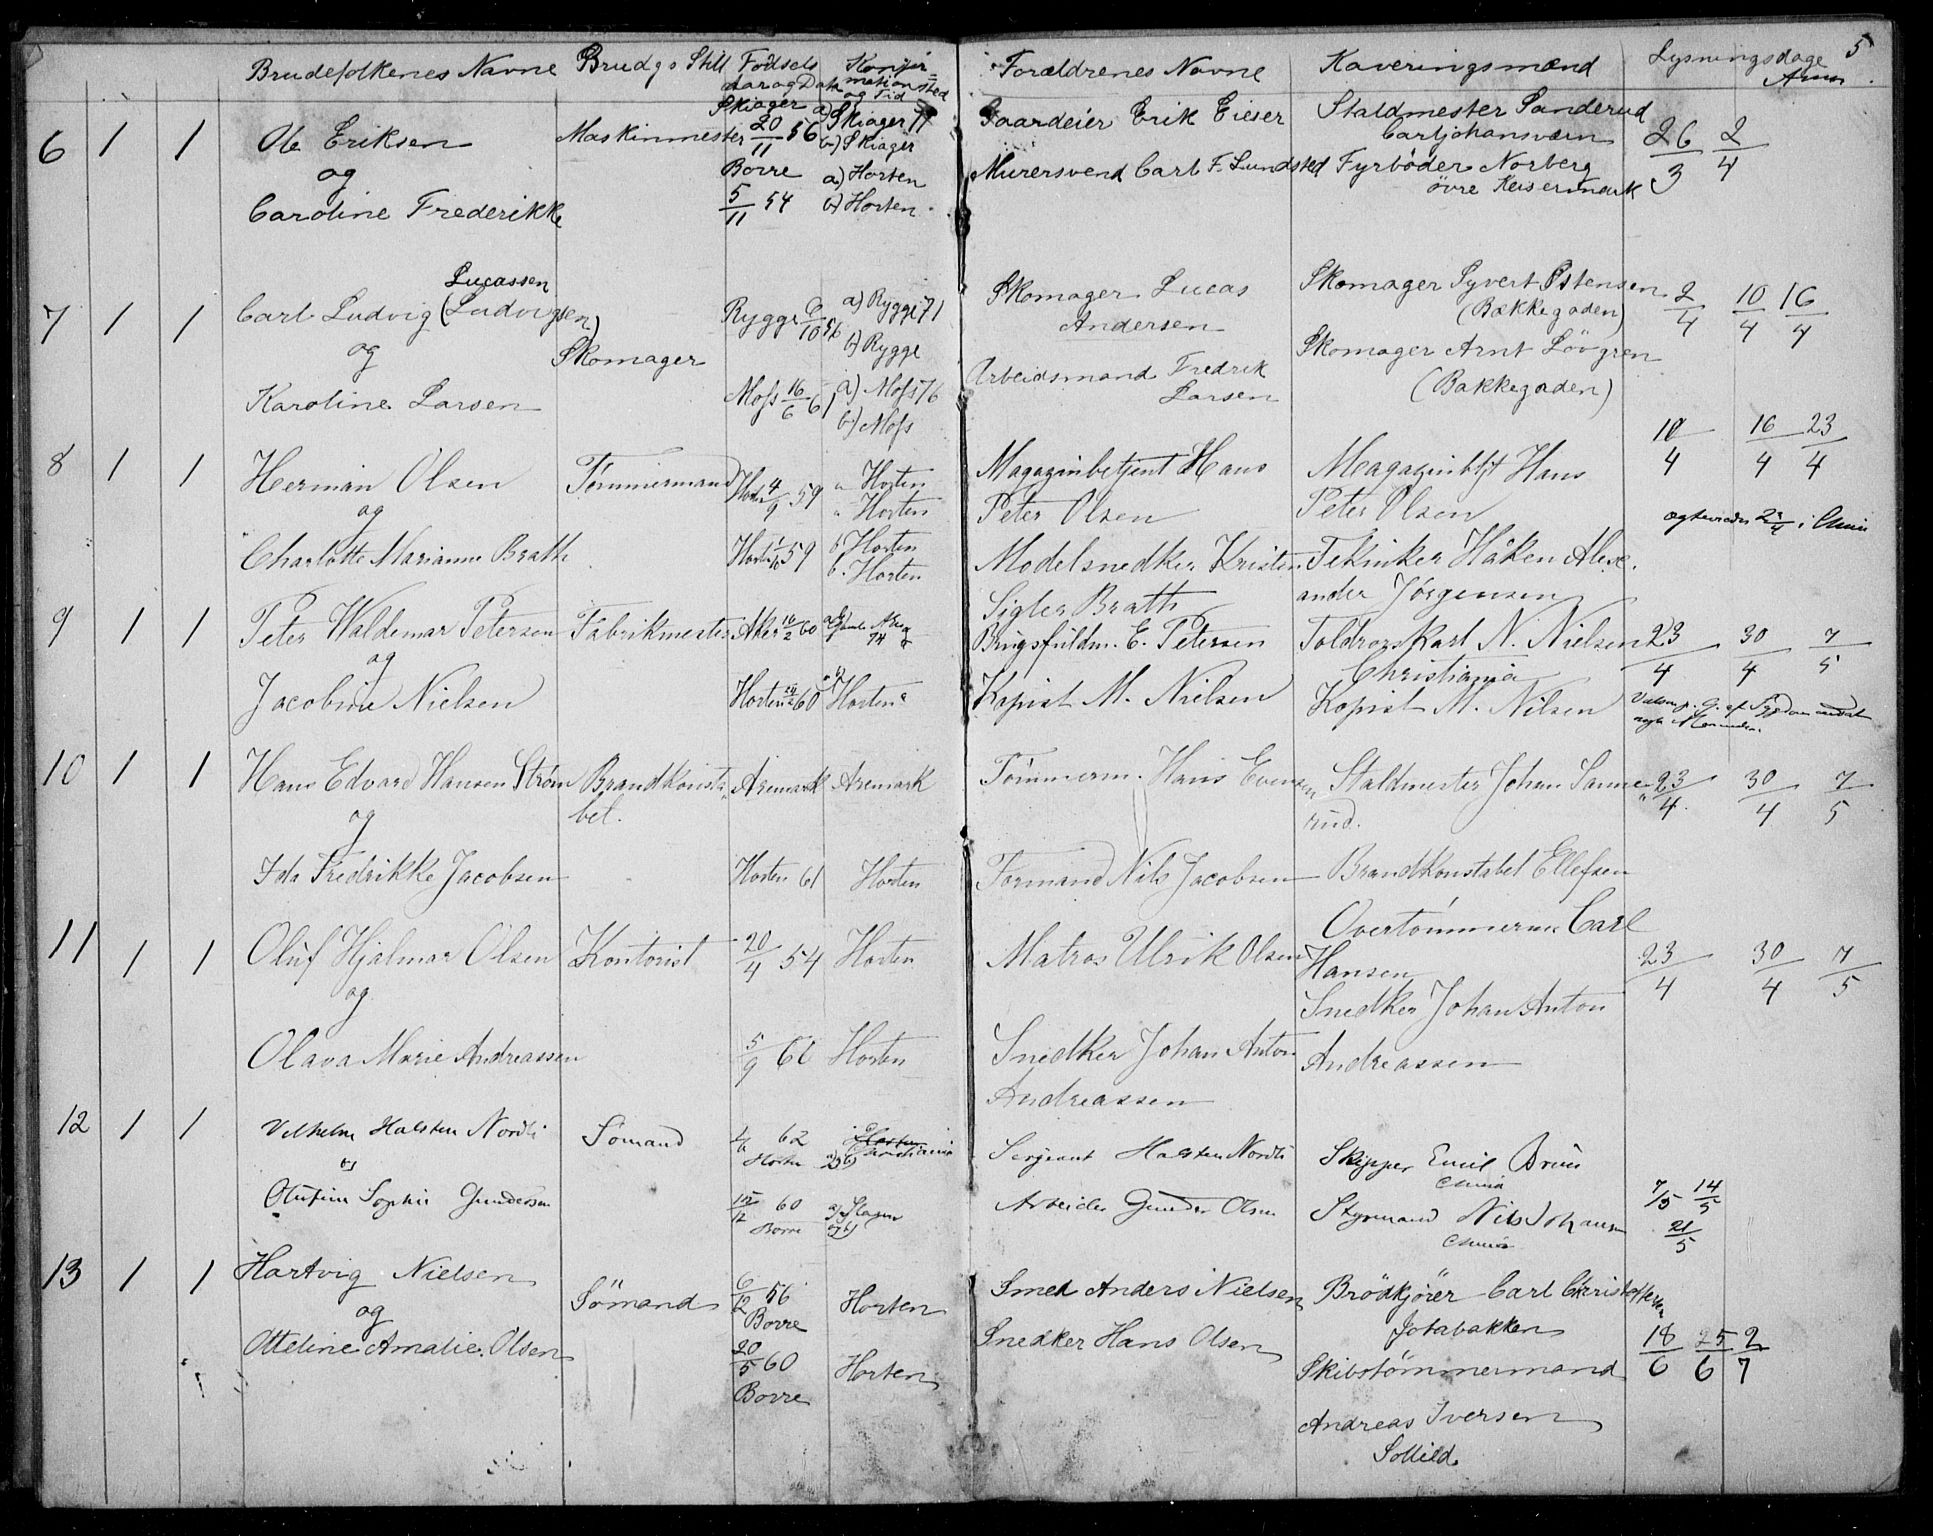 5
Brudefolkenes Navne Brudg. Still Fødsels Aar og Dato Konfirmationssted og Tid Forældrenes Navne Kaveringsmænd Lysningsdage Anm
6 1 1 Ole Eriksen Maskinmester Skiager 20/11 56 a) Skiager 71 Gaardeier Erik Eieser Staldmester Sanderud 26/3 2/4
b) Skiager Carljohansværn
og Borre a) Horten Murersvend Carl F. Lundsted Fyrbøder Norberg
Caroline Frederikke 5/11 54 b) Horten øvre Keisermark
Lucassen
7 1 1 Carl Ludvig (Ludvigsen) Rygge 6/10 56 a) Rygge 71 Skomager Lucas Skomager Syvert Østensen 2/4 10/4 16/4
b) Rygge Andersen (Bakkegaden)
og Skomager Skomager Arnt Løvgren
Karoline Larsen Moss 16/6 61 a) Moss 76 Arbeidsmand Fredrik (Bakkegaden)
b) Moss Larsen
8 1 1 Herman Olsen Tømmermand Horten 4/9 59 a Horten Magazinbetjent Hans Magazinbtjt Hans 10/4 16/4 23/4
og " Horten Peter Olsen Peter Olsen
Charlotte Marianne Brath Horten 59 b Horten Modelsnedker Kristen Tekniker Håken Alex-
b. Horten Sigler Brath ander Jørgensen
9 1 1 Peter Waldemar Petersen Fabrikmester Aker 16/2 60 Brugsfuldm. E. Petersen Toldropsk Karl N. Nielsen 23/4 30/4 7/5
og Christiania
Jacobine Nielsen Horten 60 Horten Kopist M. Nielsen Kopist M. Nilsen
10 1 1 Hans Edvard Hansen Strøm Brandkonsta- Aremark Aremark Tømmerm. Hans Evensen Staldmester Johan Sanne- 23/4 30/4 7/5
og bel. rud.
Ida Fredrikke Jacobsen Horten 61 Horten Formand Nils Jacobsen Brandkonstabel Ellefsen
11 1 1 Oluf Hjalmar Olsen Kontorist 20/4 54 Horten Matros Ulrik Olsen Overtømmerm. Carl 23/4 30/4 7/5
og Hansen
Snedker Johan Anton
Olava Marie Andreassen 5/9 61 Horten Snedker Johan Anton Andreassen
Andreassen
12 1 1 Vilhelm Halsten Nordli Sømand 62 Horten Christiania Sergeant Halsten Nordli Skipper Emil Bruu
og Chria
Olufine Sophie Gundersen 60 Borre Arbeider Gunder Olsen Styrmand Nils Johansen 7/5 14/5
Chria 21/5
13 1 1 Hartvig Nielsen Sømand 6/12 56 Horten Smed Anders Nielsen Brødkjører Carl Christoffersen
og Borre Jotabakken 18/6 25/6 2/7
Otteline Amalie Olsen 20/5 60 Horten Snedker Hans Olsen Skibstømmermand
Borre Andreas Iversen
Sollild.